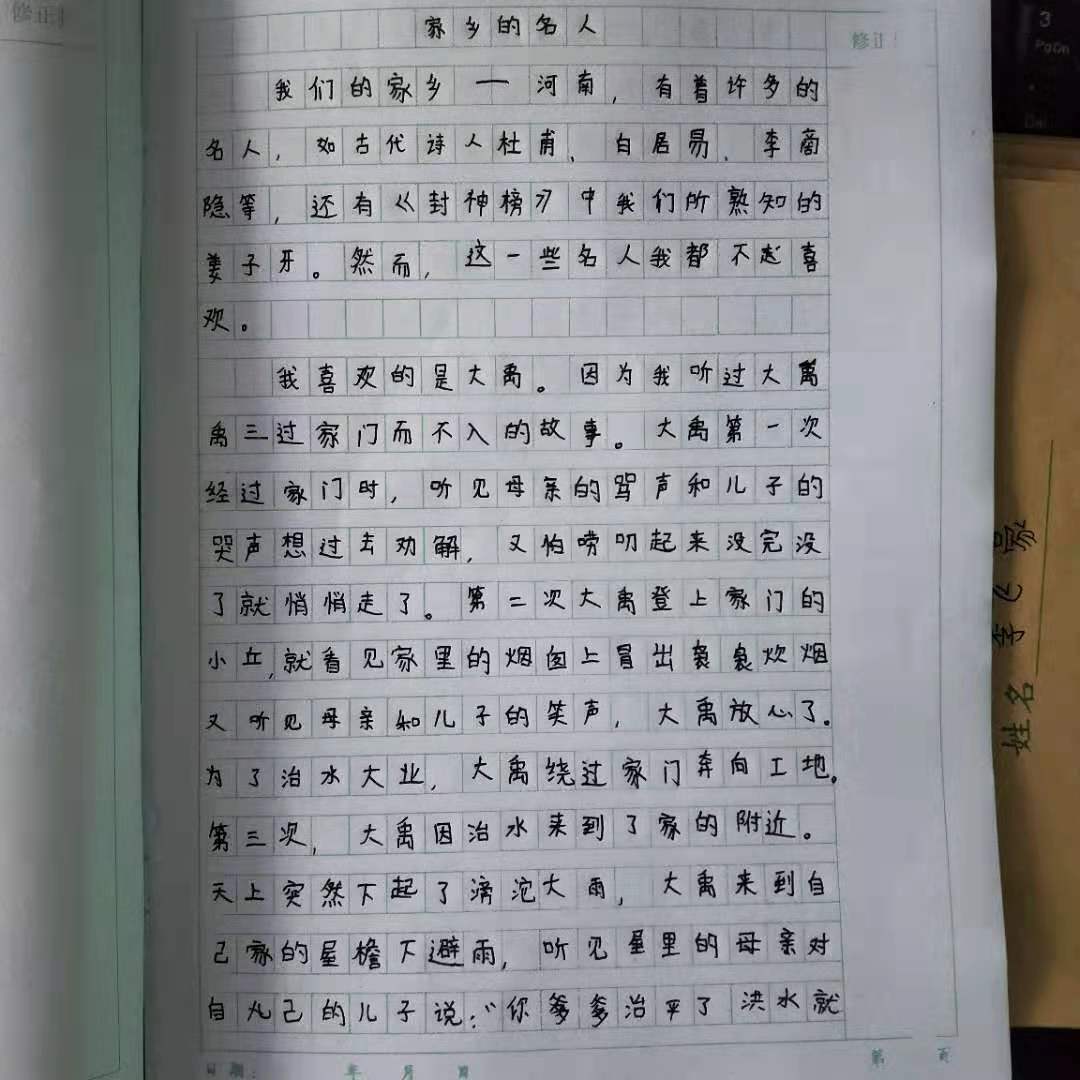 家乡的名人
修订：
我们的家乡——河南，有着许多的
名人，如古代诗人杜甫、白居易、李商
隐等，还有《封神榜》中我们所熟知的
姜子牙。然而，这一些名人我都不太喜
欢。
我喜欢的是大禹。因为我听过大禹
禹三过家门而不入的故事。大禹第一次
经过家门时，听见母亲的骂声和儿子的
哭声想过去劝解，又怕唠叨起来没完没
了就悄悄走了。第二次大禹登上家门的
小丘，就看见家里的烟囱上冒出袅袅炊烟
又听见母亲和儿子的笑声，大禹放心了。
为了治水大业，大禹绕过家门奔向工地。
第三次，大禹因治水来到了家的附近。
天上突然下起了滂沱大雨，大禹来到自
己家的屋檐下避雨，听见屋里的母亲对
自己的儿子说：“你爹爹治平了洪水就
日期： 年 月 日
第 页
姓名
3
PgDn